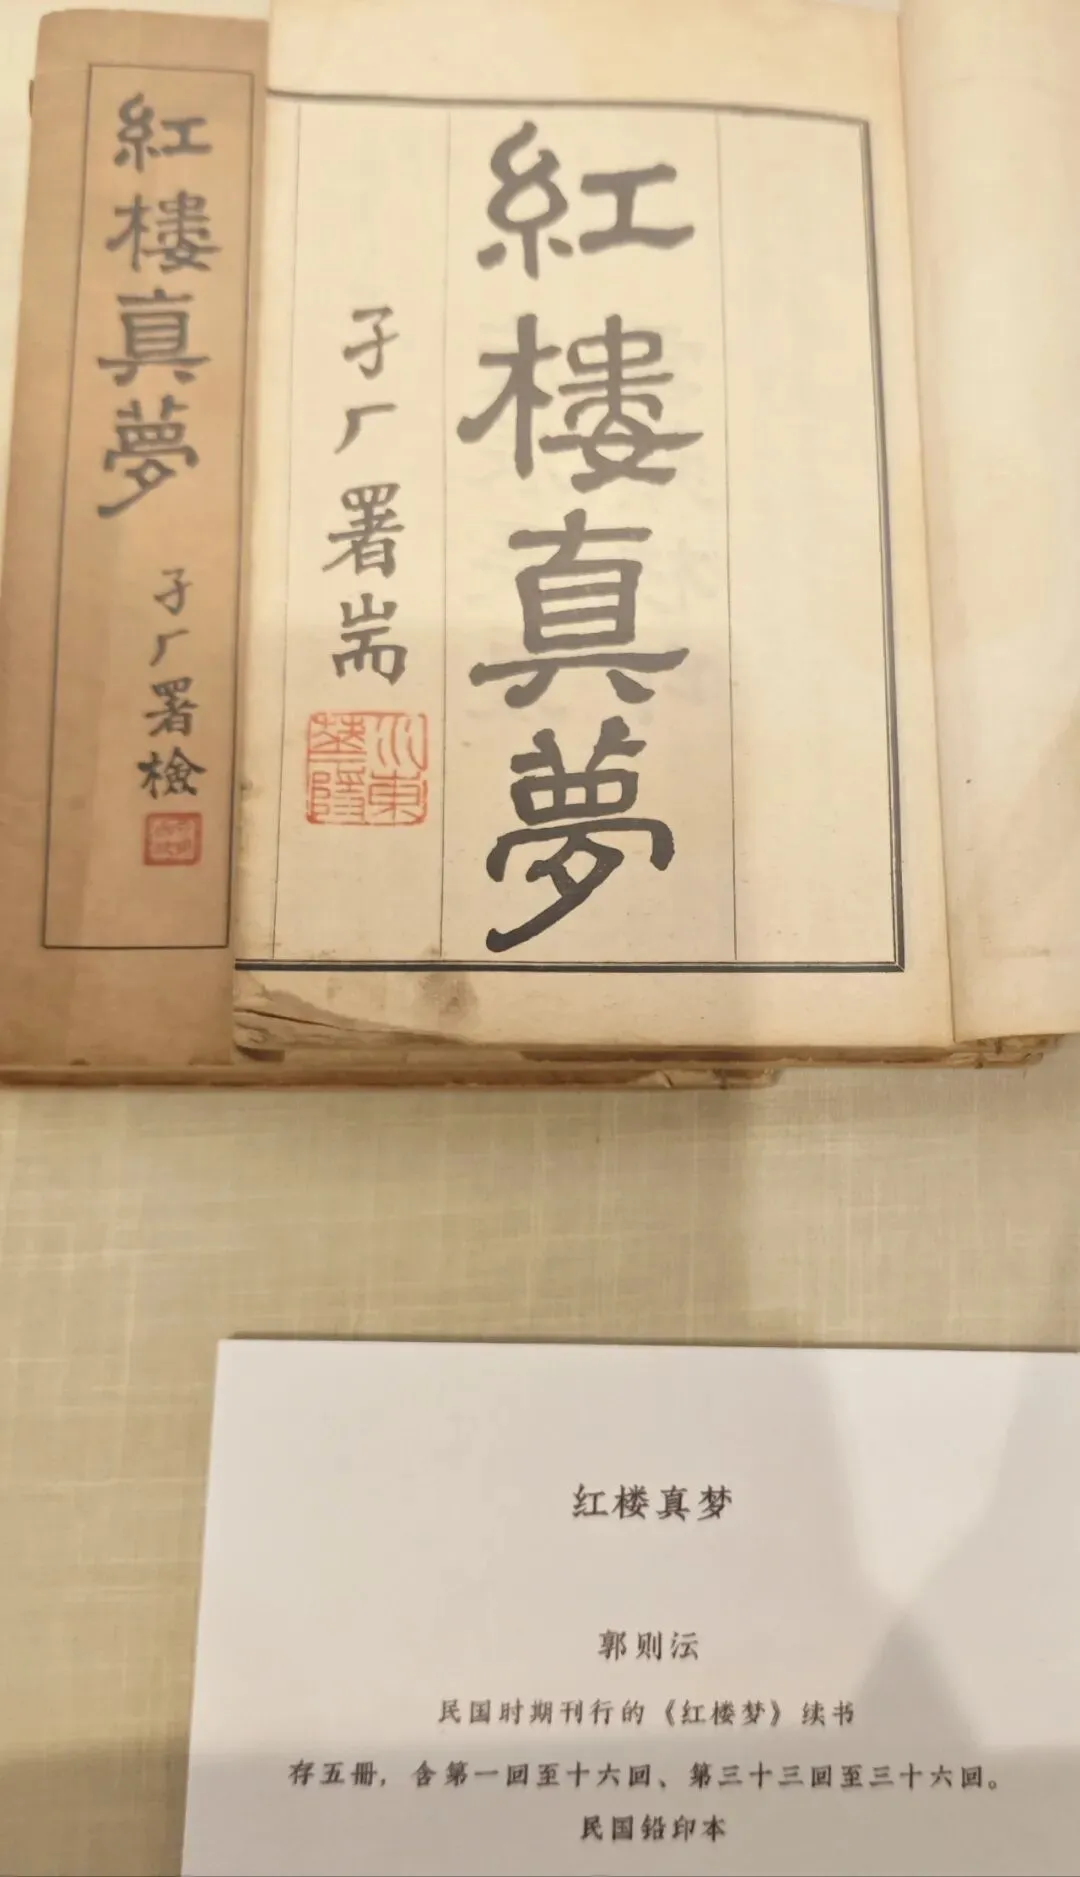 紅樓真夢
孑厂署檢
紅樓真夢
孑厂署耑
红楼真梦
郭则沄
民国时期刊行的《红楼梦》续书
存五册，含第一回至十六回、第三十三回至三十六回。
民国铅印本